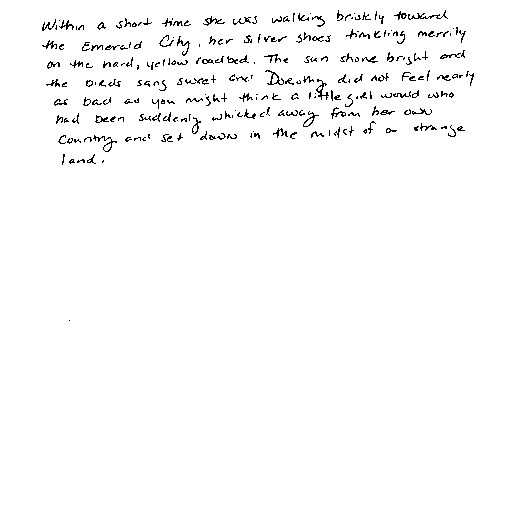 Within a short time she was walking briskly toward
the Emerald City, her silver shoes tinkling merrily
on the hard, yellow roadbed. The sun shone bright and
the birds sang sweet and Dorothy did not feel nearly
as bad as you might think a little girl would who
had been suddenly whicked away from her own
country and set down in the midst of a strange
land.